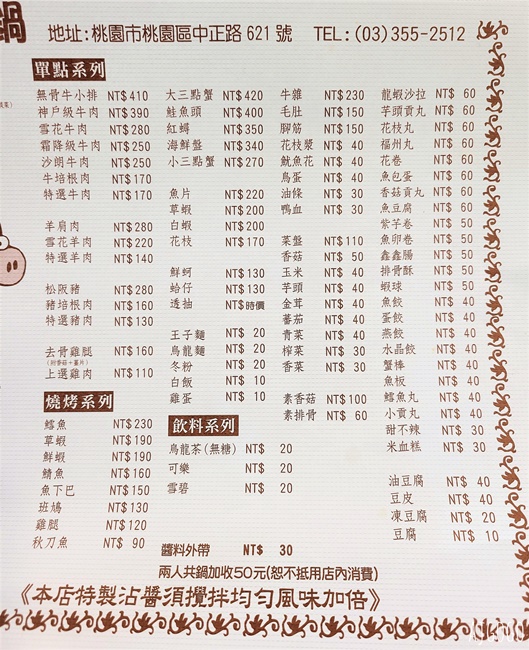 鍋
地址:桃園市桃園區中正路 621 號 TEL:(03)355-2512
單點系列
無骨牛小排 NT$410
神戶級牛肉 NT$390
雪花牛肉 NT$280
霜降級牛肉 NT$250
沙朗牛肉 NT$250
牛培根肉 NT$170
特選牛肉 NT$170
羊肩肉 NT$280
雪花羊肉 NT$220
特選羊肉 NT$140
松阪豬 NT$280
豬培根肉 NT$160
特選豬肉 NT$130
去骨雞腿 NT$160
(附香菇+薑片)
上選雞肉 NT$110
燒烤系列
鱈魚 NT$230
草蝦 NT$190
鮮蝦 NT$190
鯖魚 NT$160
魚下巴 NT$150
班鳩 NT$130
雞腿 NT$120
秋刀魚 NT$ 90
大三點蟹 NT$420
鮭魚頭 NT$400
紅蟳 NT$350
海鮮盤 NT$340
小三點蟹 NT$270
魚片 NT$220
草蝦 NT$200
白蝦 NT$200
花枝 NT$170
鮮蚵 NT$130
蛤仔 NT$130
透抽 NT$時價
王子麵 NT$ 20
烏龍麵 NT$ 20
冬粉 NT$ 20
白飯 NT$ 10
雞蛋 NT$ 10
飲料系列
烏龍茶(無糖) NT$ 20
可樂 NT$ 20
雪碧 NT$ 20
牛雜 NT$230
毛肚 NT$150
腳筋 NT$150
花枝漿 NT$ 40
魷魚花 NT$ 40
鳥蛋 NT$ 40
油條 NT$ 30
鴨血 NT$ 30
菜盤 NT$110
香菇 NT$ 50
玉米 NT$ 40
芋頭 NT$ 40
金茸 NT$ 40
蕃茄 NT$ 40
青菜 NT$ 40
榨菜 NT$ 30
香菜 NT$ 30
素香菇 NT$100
素排骨 NT$ 60
龍蝦沙拉 NT$ 60
芋頭貢丸 NT$ 60
花枝丸 NT$ 60
福州丸 NT$ 60
花卷 NT$ 60
魚包蛋 NT$ 60
香菇貢丸 NT$ 60
魚豆腐 NT$ 60
紫芋卷 NT$ 50
魚卵卷 NT$ 50
鑫鑫腸 NT$ 50
排骨酥 NT$ 50
蝦球 NT$ 50
魚餃 NT$ 40
蛋餃 NT$ 40
燕餃 NT$ 40
水晶餃 NT$ 40
蟹棒 NT$ 40
魚板 NT$ 40
鱈魚丸 NT$ 40
小貢丸 NT$ 40
甜不辣 NT$ 30
米血糕 NT$ 30
油豆腐 NT$ 40
豆皮 NT$ 40
凍豆腐 NT$ 20
豆腐 NT$ 10
醬料外帶 NT$ 30
兩人共鍋加收50元(恕不抵用店內消費)
《本店特製沾醬須攪拌均勻風味加倍》